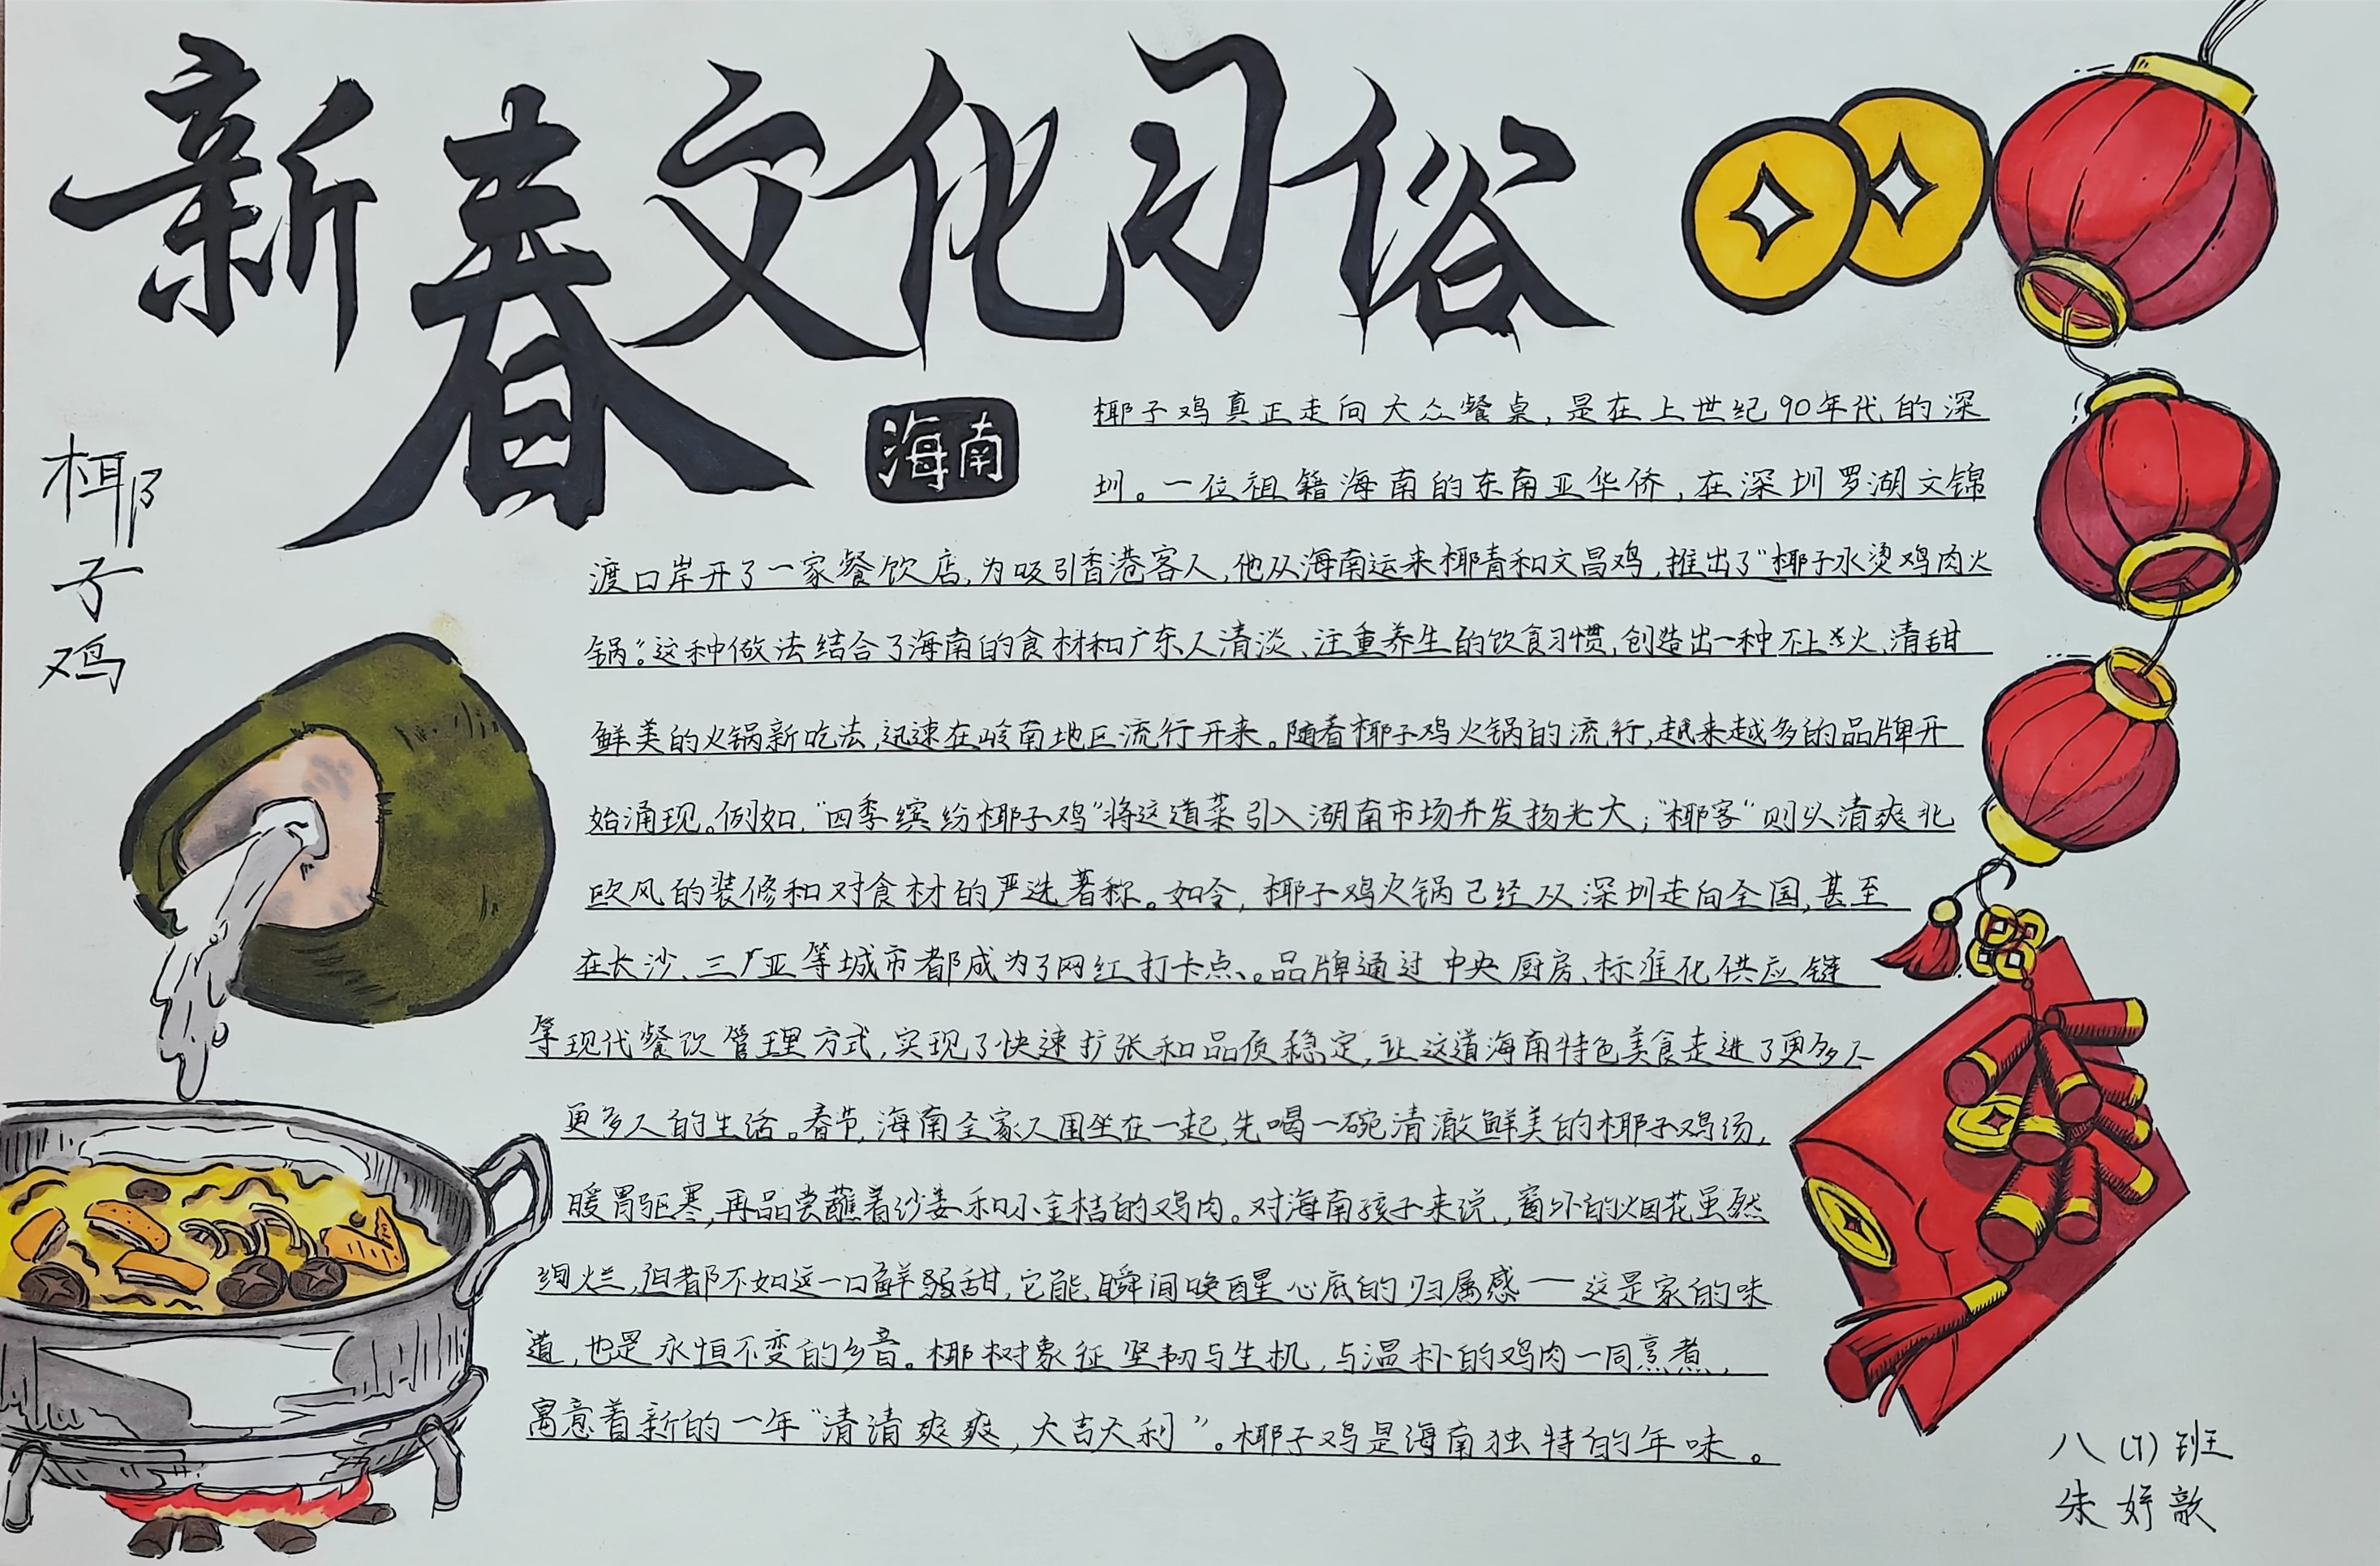 新春文化习俗
海南
椰子鸡
椰子鸡真正走向大众餐桌，是在上世纪90年代的深
圳。一位祖籍海南的东南亚华侨，在深圳罗湖文锦
渡口岸开了一家餐饮店，为吸引香港客人，他从海南运来椰青和文昌鸡，推出了“椰子水烫鸡肉火
锅”。这种做法结合了海南的食材和广东人清淡、注重养生的饮食习惯，创造出一种不上火、清甜
鲜美的火锅新吃法，迅速在岭南地区流行开来。随着椰子鸡火锅的流行，越来越多的品牌开
始涌现。例如，“四季缤纷椰子鸡”将这道菜引入湖南市场并发扬光大；“椰客”则以清爽北
欧风的装修和对食材的严选著称。如今，椰子鸡火锅已经从深圳走向全国，甚至
在长沙、三亚等城市都成为了网红打卡点。品牌通过中央厨房、标准化供应链
等现代餐饮管理方式，实现了快速扩张和品质稳定，让这道海南特色美食走进了更多人
更多人的生活。春节，海南全家人围坐在一起，先喝一碗清澈鲜美的椰子鸡汤，
暖胃驱寒，再品尝蘸着沙姜和小金桔的鸡肉。对海南孩子来说，窗外的烟花虽然
绚烂，但都不如这一口鲜甜，它能瞬间唤醒心底的归属感——这是家的味
道，也是永恒不变的乡音。椰树象征坚韧与生机，与温补的鸡肉一同烹煮，
寓意着新的一年“清清爽爽，大吉大利”。椰子鸡是海南独特的年味。
八（1）班
朱妤歆